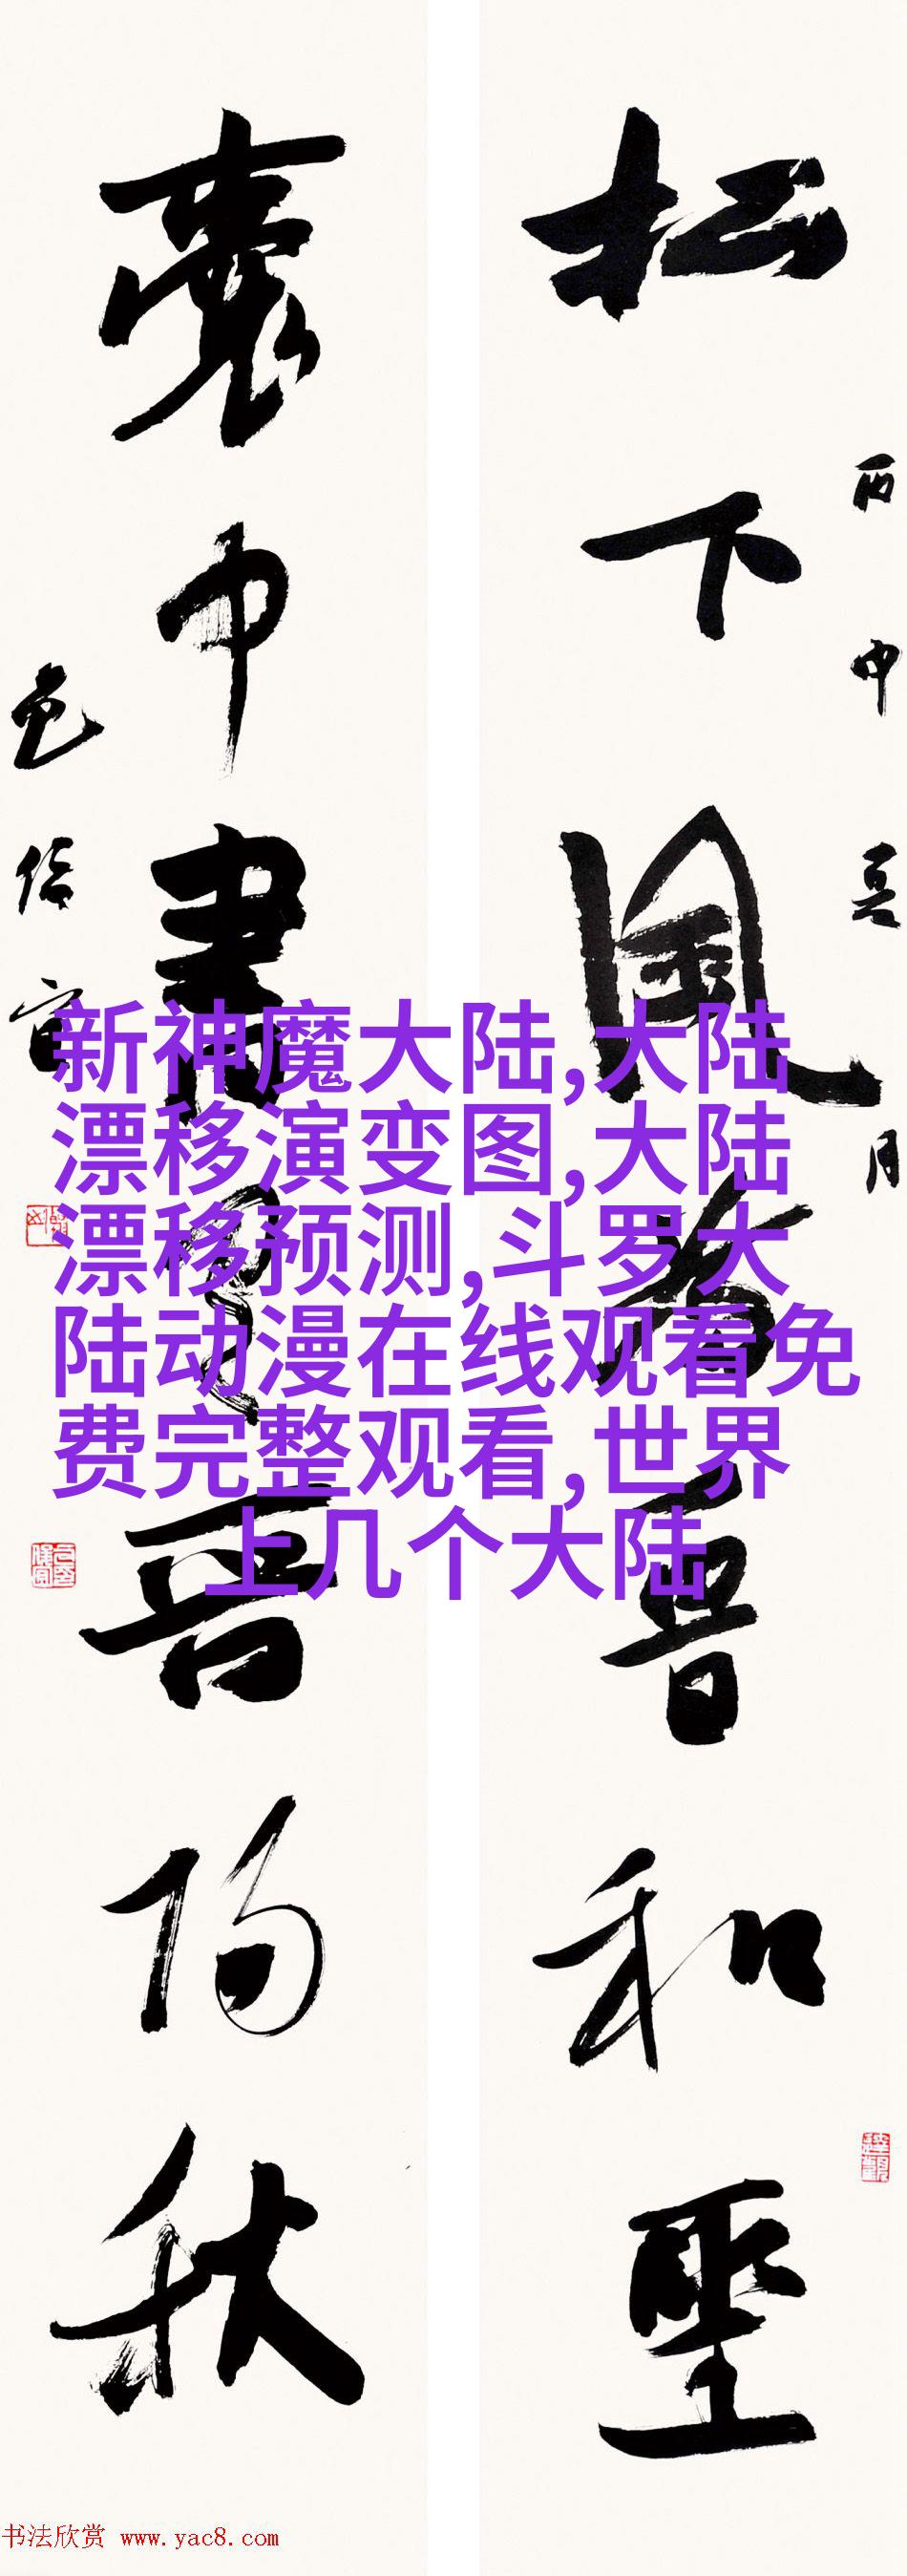 松下風為晋和聖
丙申夏月
囊中書晋陽秋
信
新神魔大陆,大陆
漂移演变图,大陆
漂移预测,斗罗大
陆动漫在线观看免
费完整观看,世界
上几个大陆
书法欣赏 www.yac8.com